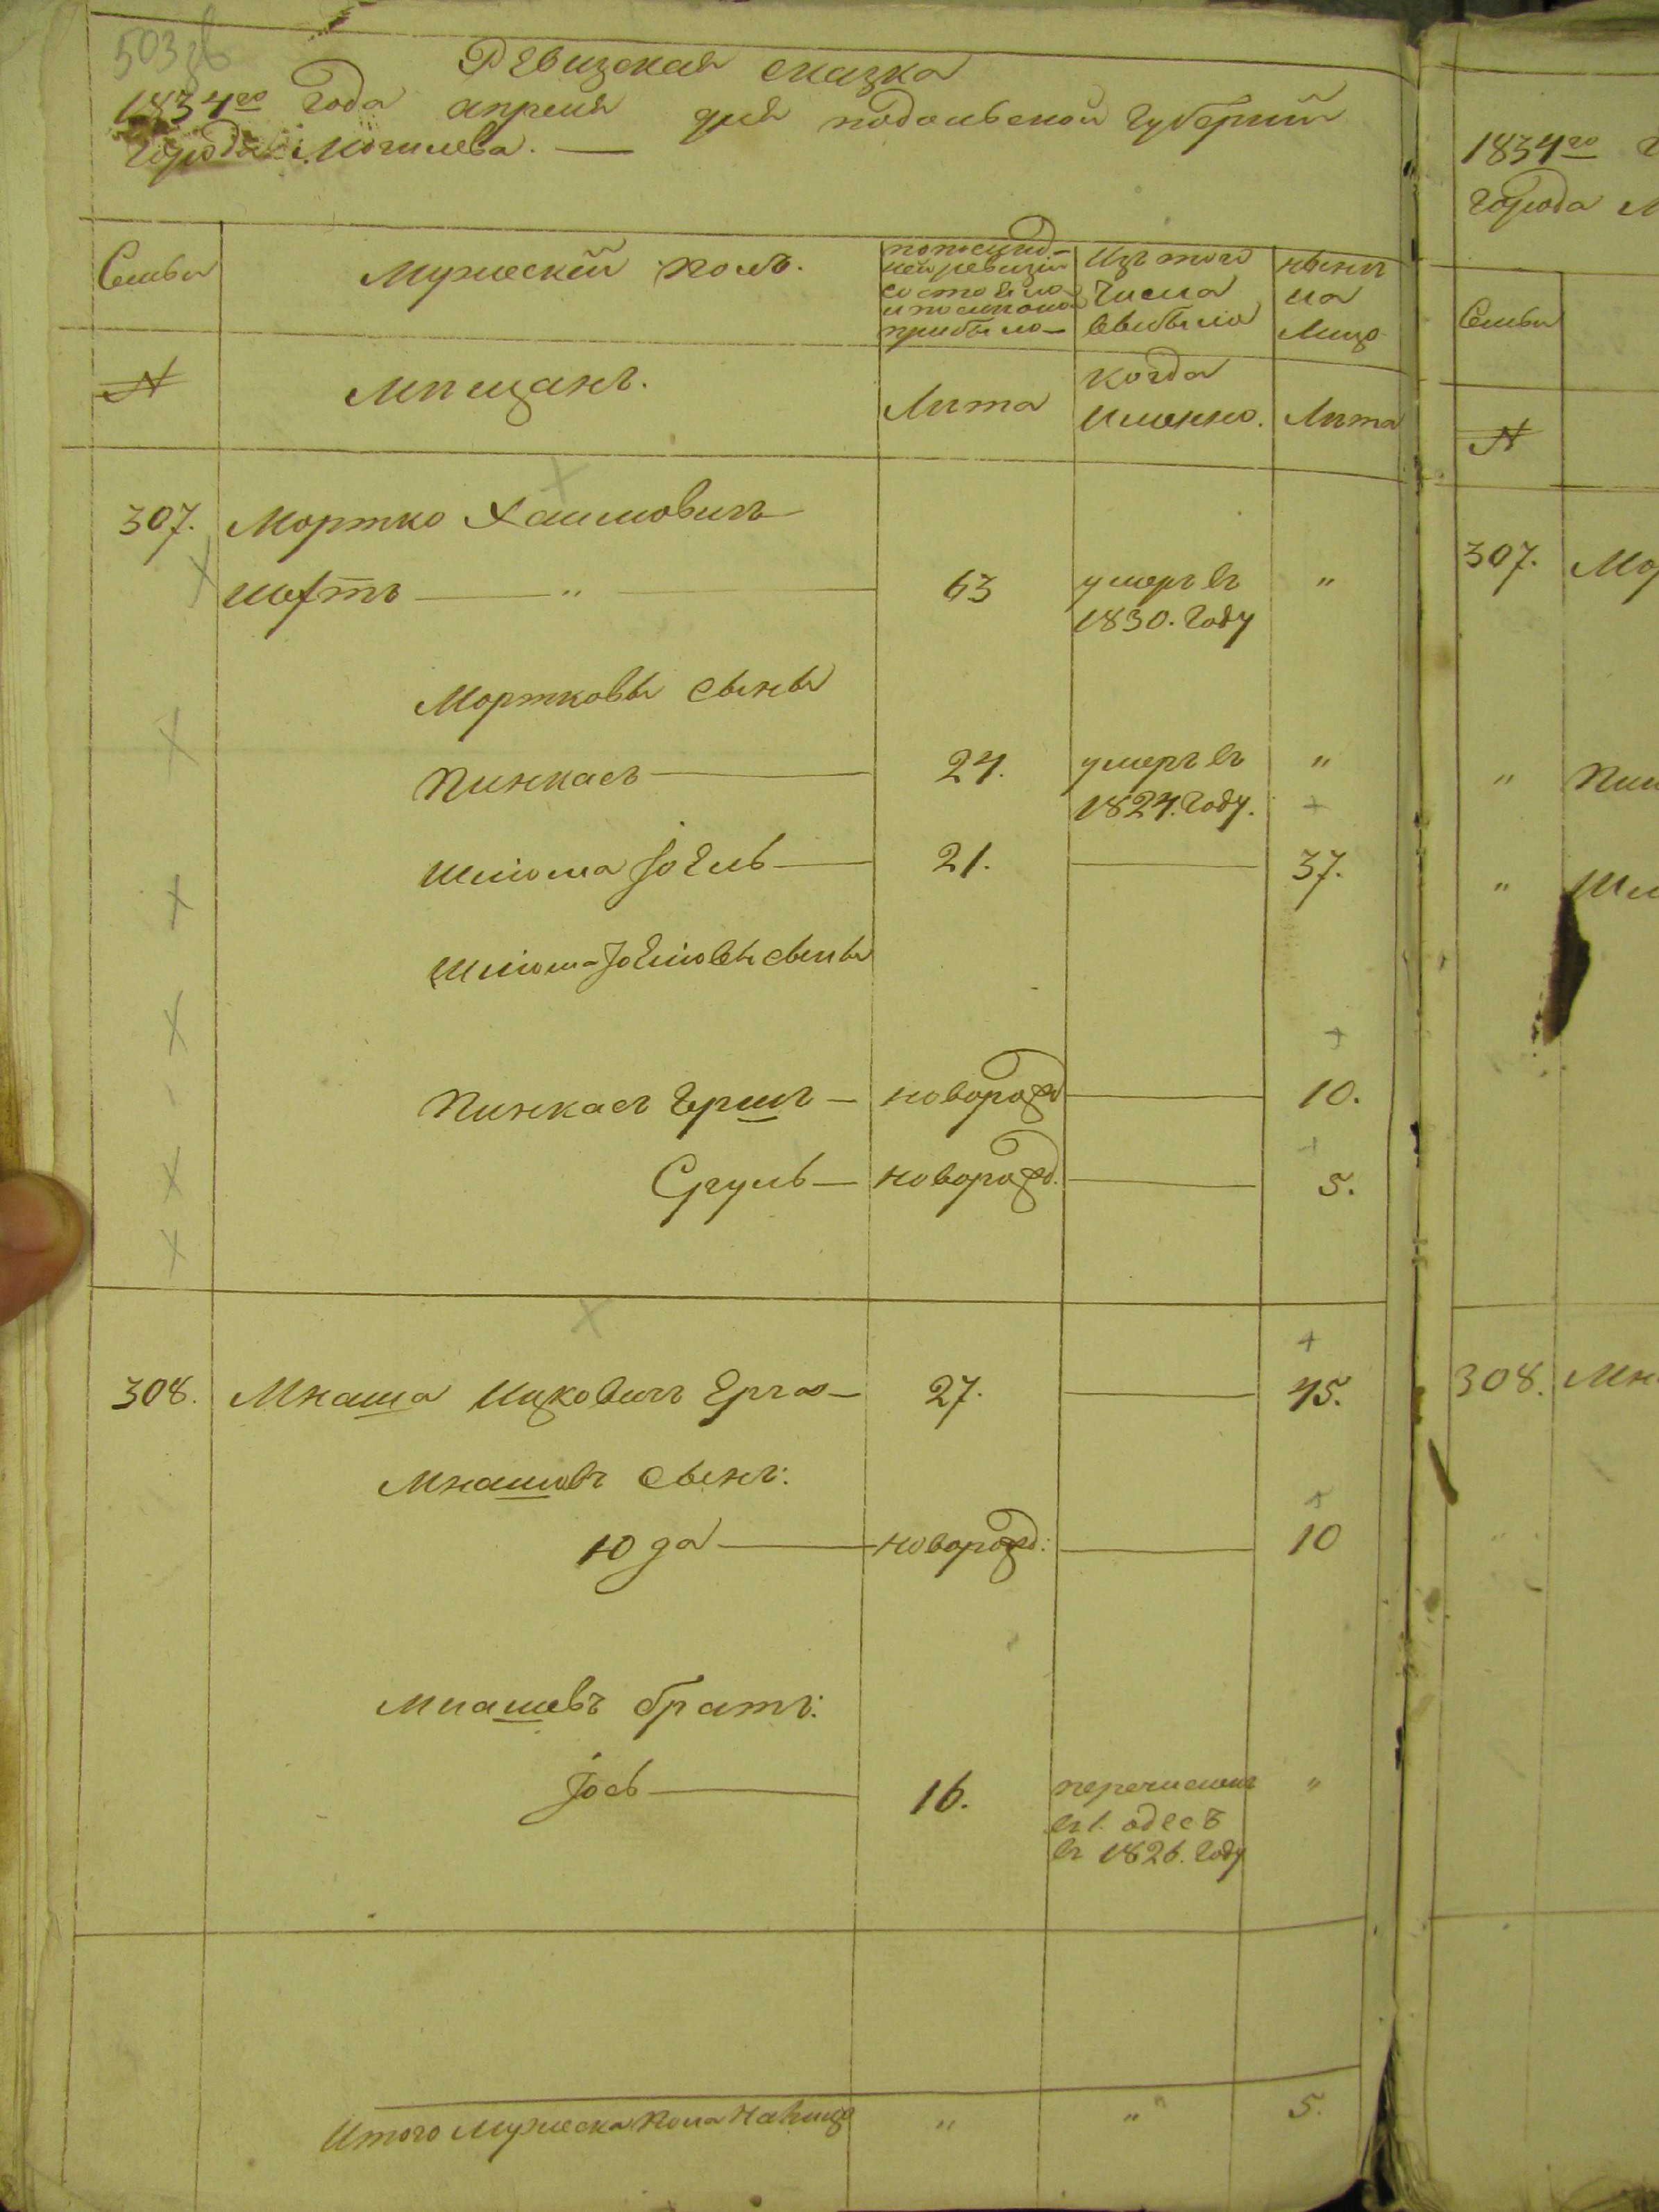 503
Ревизская сказка
1834го года апреля дня подольской губернии
города Могилева.
Семьи
Мужеский полъ.
по последней ревизии состояло и после оной прибыло
Изъ того числа выбыло
ныне на лицо
№
Мещанъ.
Лета
когда именно.
Лета
307. Мортко Хаимовичъ
Шехтъ — " — 63 умеръ въ "
1830. году
Мортковы сыны
Пинкасъ — 24. умеръ въ "
1824. году.
Шлiома Jоель — 21. — 37.
Шлiома Jоелiовы сыны
Пинкасъ Гершъ — новорожд — 10.
Сруль — новорожд. — 5.
308. Мнаша Ицковичъ — 27. — 45.
Мнашевъ сынъ:
Юда — новорожд: — 10
Мнашевъ братъ:
Jось — 16. перечисленъ "
въ г. одесъ
въ 1826. году
Итого мужеска пола на лицо " " 5.
1834го
города М
Семьи
№
307. Мор
" Пин
" Шл
308. Мн